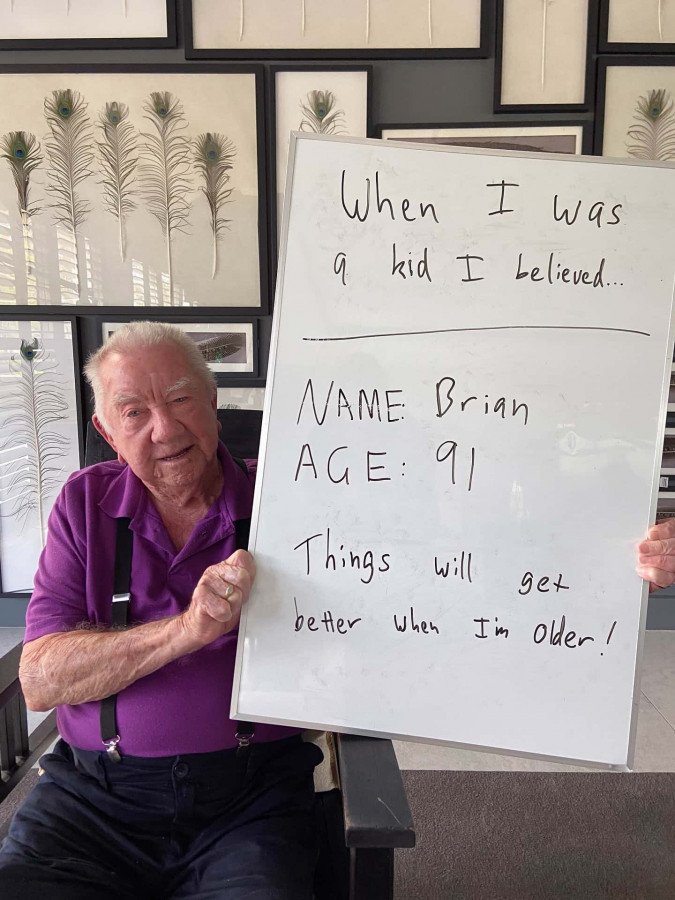 When I was
a kid I believed...
NAME: Brian
AGE: 91
Things will get
better when I'm older!